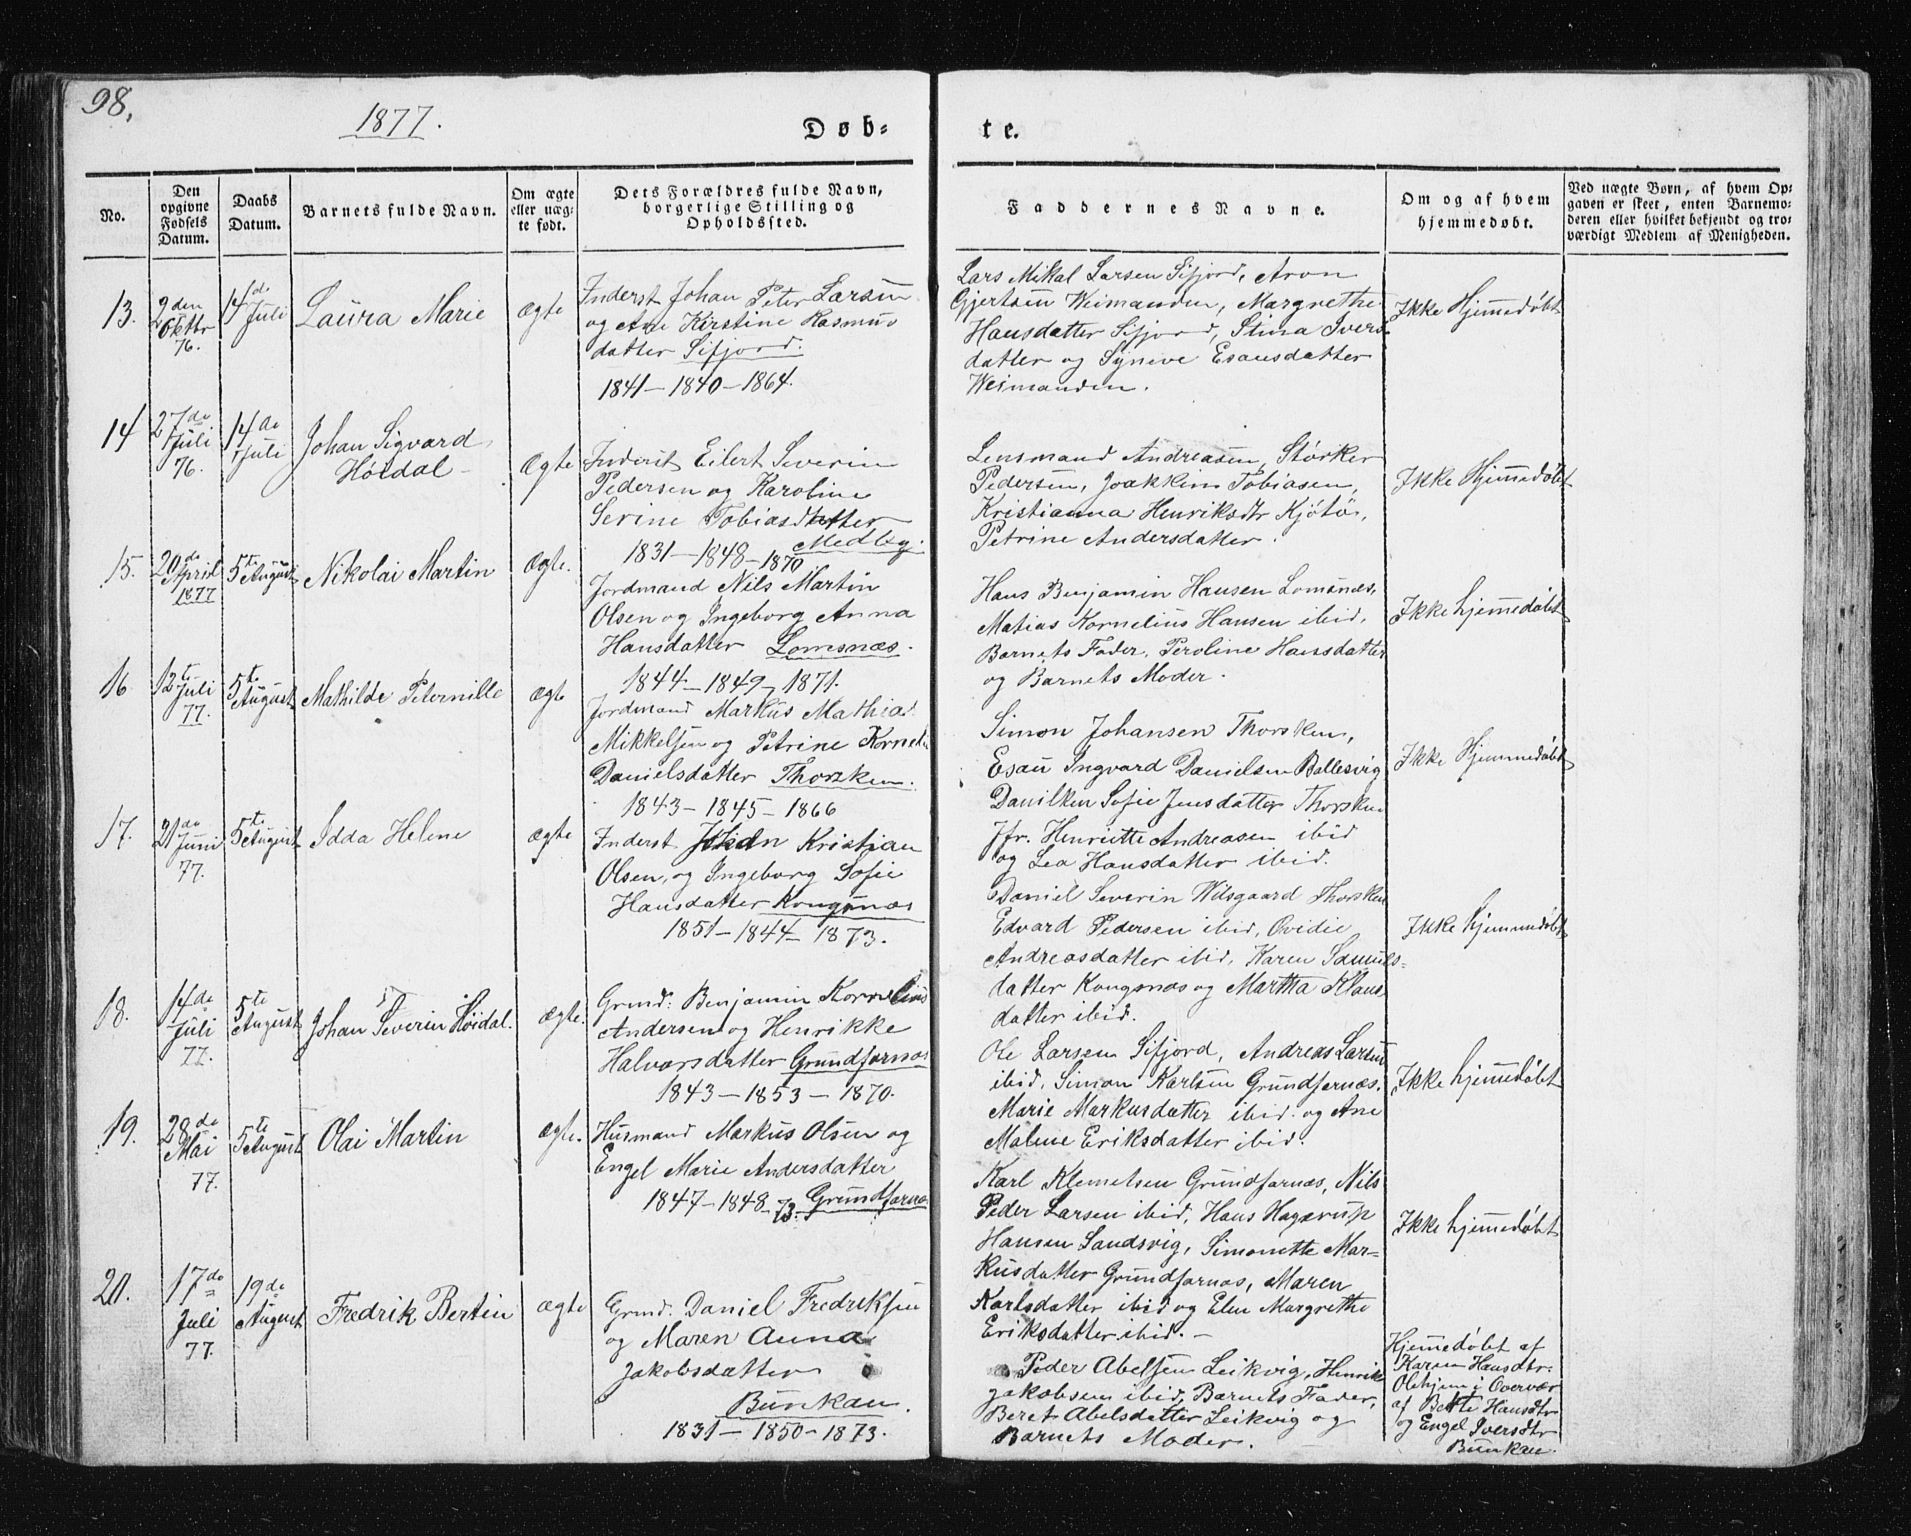 98.
1877.
Døb-
te.
No.
Den
opgivne
Fødsels
Datum.
Daabs
Datum.
Barnets fulde Navn.
Om ægte
eller uæg-
te født.
Dets Forældres fulde Navn,
borgerlige Stilling og
Opholdssted.
Faddernes Navne.
Om og af hvem
hjemmedøbt.
Ved uægte Børn, af hvem Op-
gaven er skeet, enten Barnemo-
deren eller hvilket bekjendt og tro-
værdigt Medlem af Menigheden.
13.
2den
Oktbr
76.
14de
Juli
Laura Marie
ægte
Inderst Johan Peter Larsen
og Ane Kirstine Rasmus
datter Sifjord.
1841 - 1840 - 1864.
Lars Mikal Larsen Sifjord, Aron
Gjertsen Weimanden, Margrethe
Hansdatter Sifjord, Stina Ivers
datter og Syneve Esausdatter
Weimanden.
Ikke Hjemedøbt
14
27de
Juli
76.
14de
Juli
Johan Sigvard
Høidal
Ægte
Inderst Eilert Severin
Pedersen og Karoline
Serine Tobiasdatter
Medby.
1831 - 1848 - 1870
Lensmand Andreasen, Størker
Pedersen, Joakkim Tobiasen,
Kristianna Henriksdtr Kjötö,
Petrine Andersdatter.
Ikke Hjemedøbt
15.
20de
April
1877
5te
August
Nikolai Martin
Ægte.
Jordmand Nils Martin
Olsen og Ingeborg Anna
Hansdatter Lomsnæs.
1844 - 1849 - 1871.
Hans Benjamin Hansen Lomsnæs,
Matias Kornelius Hansen ibid,
Barnets Fader, Peroline Hansdatter
og Barnets Moder.
Ikke hjemedøbt
16
12te
Juli
77.
5te
August
Mathilde Peternille
ægte
Jordmand Markus Mathias
Mikkelsen og Petrine Korneli
Danielsdatter Thorsken.
1843 - 1845 - 1866
Simon Johansen Thorsken,
Esau Ingvard Danielsen Ballesvig
Danilken Sofie Jensdatter Thorsken
Jfr. Henriette Andreasen ibid
og Lea Hansdatter ibid.
Ikke Hjemmedøbt
17.
21de
Juni
77.
5te
August
Idda Helene
ægte
Inderst Johan Kristian
Olsen, og Ingeborg Sofie
Hansdatter Kongsnæs
1851 - 1844 - 1873.
Daniel Severin Wilsgaard Thorsken
Edvard Pedersen ibid, Ovidie
Andreasdatter ibid, Karen Samuels-
datter Kongsnæs og Martha Klaus
datter ibid.
Ikke hjemmedøbt
18.
14de
Juli
77.
5te
August
Johan Severin Høidal.
ægte.
Grund: Benjamin Kornelius
Andersen og Henrikke
Halvorsdatter Grundfarnæs
1843 - 1853 - 1870.
Ole Larsen Sifjord, Andreas Larsen
ibid, Simon Karlsen Grundfarnæs.
Marie Markusdatter ibid. og Ane
Malene Eriksdatter ibid.
Ikke hjemedøbt
19.
28de
Mai
77.
5te
August
Olai Martin
ægte.
Husmand Markus Olsen og
Engel Marie Andersdatter
1847 - 1848 - 73. Grundfarnæs
Karl Klemetsen Grundfarnæs, Nils
Peder Larsen ibid, Hans Hagerup
Hansen Sandsvig, Simonette Mar-
kusdatter Grundfarnæs, Maren
Karlsdatter ibid og Elen Margrethe
Eriksdatter ibid. -
Ikke hjemedøbt
20.
17de
Juli
77.
19de
August
Fredrik Bertin
ægte
Grund: Daniel Fredriksen
og Maren Anna
Jakobsdatter
Bunkan.
1831 - 1850 - 1873.
Peder Abelsen Leikvig, Henrik
Jakobsen ibid, Barnets Fader,
Beret Abelsdatter Leikvig og
Barnets Moder.
Hjemedøbt af
Karen Hansdtr.
Olehjem i Overvær
af Bette Hansdtr
og Engel Iversdtr
Bunkan.